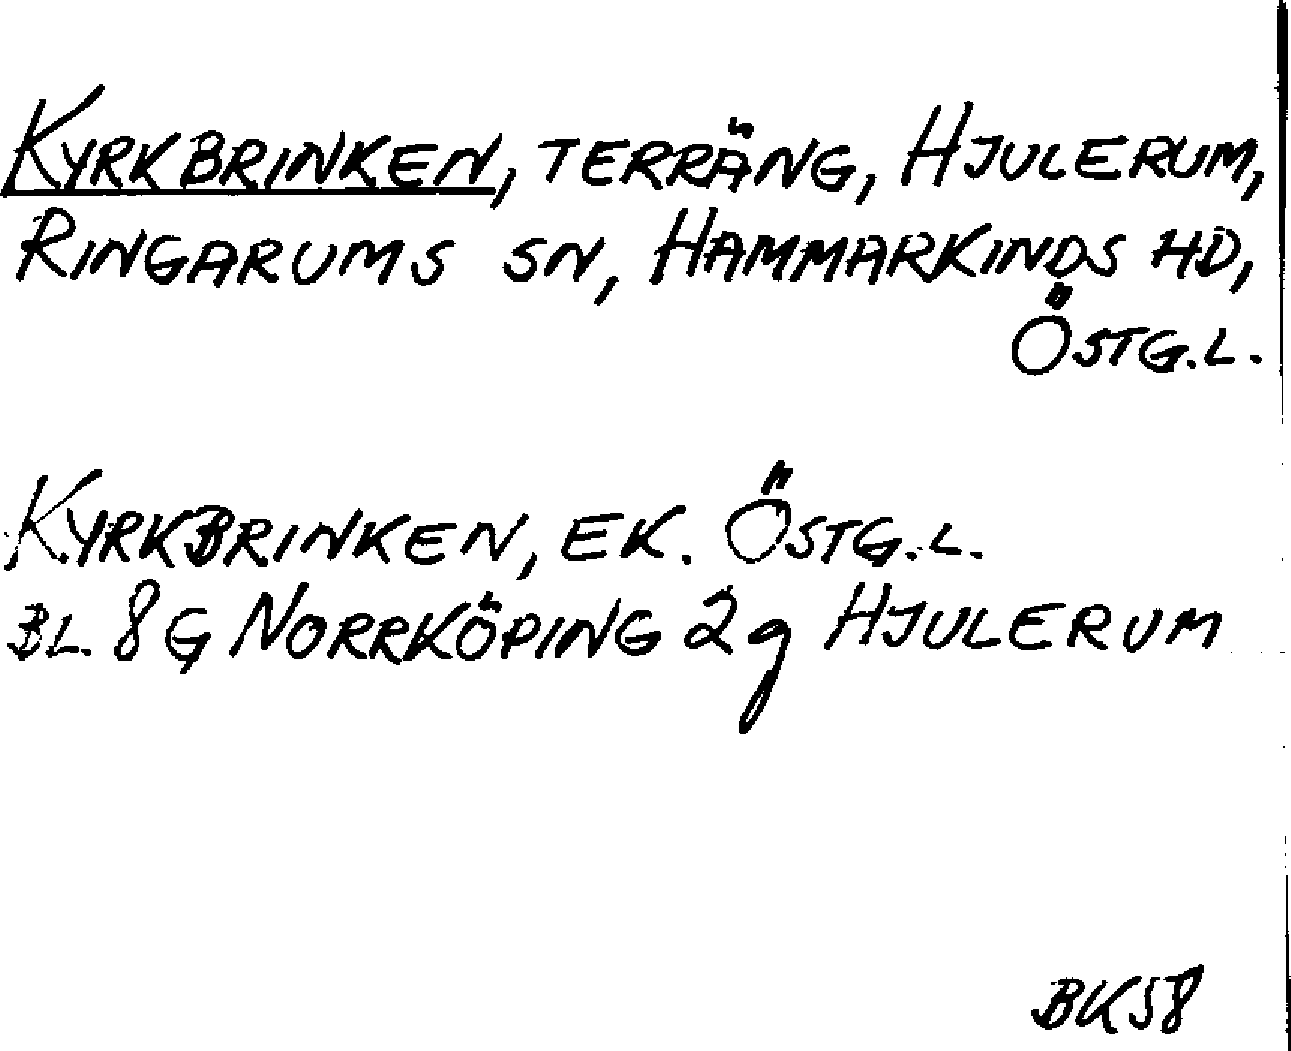 KYRKBRINKEN, TERRÄNG, HJULERUM,
RINGARUMS SN, HAMMARKINDS HD,
ÖSTG.L.
KYRKBRINKEN, EK. ÖSTG.L.
BL. 8G NORRKÖPING 2g HJULERUM
BK58